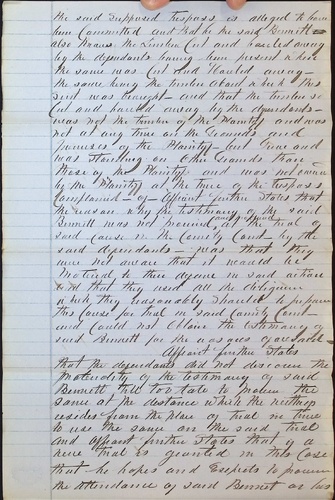 the said supposed trespass is alleged to have
been Committed and that he the said Bennitt
also knows the timber Cut and hauled away
by the defendants having been present when
the same was Cut and Hauled away
the same being the timber about which this
suit was brought and that the timber so
Cut and hauled away by the defendants
was not the timber of the Plaintiff and was
not at any time on the Grounds and
premises of the Plaintiff but Grew and
was standing on other Grounds than
those of the Plaintiff and was not owned
by the Plaintiff at the time of the trespass
Complained of Affiant further States that
the reason why the testimony of the said
Bennitt was not procured at the trial of
said cause in the County Court by the
said defendants was that they
were not aware that it would be
Material to their defence in said action
that they used all the diligence
which they reasonably should to prepare
this Cause for trial in said County Court
and Could not obtain the testimony of
said Bennitt for the reasons aforesaid
Affiant further States
that the defendants did not discover the
Materiality of the testimony of said
Bennitt till too late to procure the
same at the distance which the witness
resides from the place of trial in time
to use the same on the said trial
and Affiant further States that if a
new trial is granted in this Case
that he hopes and Expects to procure
the attendance of said Bennet or